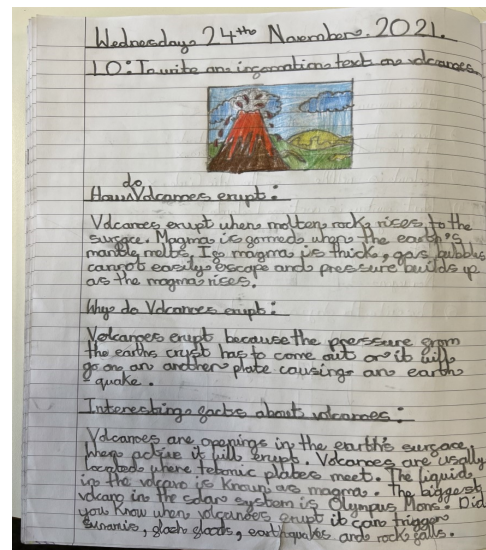 Wednesday 24th November. 2021.
LO: To write an information text on volcanoes.
do
How Volcanoes erupt:
Volcanoes erupt when molten rock rises to the
surface. Magma is formed when the earth's
mantle melts. If magma is thick, gas bubbles
cannot easily escape and pressure builds up
as the magma rises.
Why do Volcanoes erupt:
Volcanoes erupt because the pressure from
the earths crust has to come out or it will
go on an another plate causing an earth
quake.
Interesting facts about volcanoes:
Volcanoes are openings in the earth's surface,
when active it will erupt. Volcanoes are usally
located where tetonic plates meet. The liquid
in the volcano is known as magma. The biggest
volcano in the solar system is Olympus Mons. Did
you know when volcanoes erupt it can trigger
sunamis, flash floods, earthquakes and rock falls.